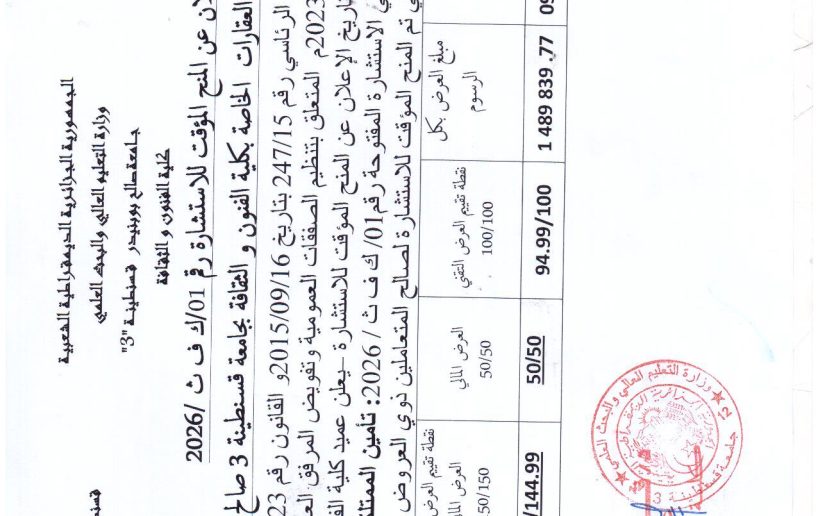 الجمهورية الجزائرية الديمقراطية الشعبية
وزارة التعليم العالي والبحث العلمي
جامعة صالح بوبنيدر قسنطينة "3"
كلية الفنون و الثقافة
لان عن المنح المؤقت للاستشارة رقم 01/ك ف ث /2026
العقارات الخاصة بكلية الفنون و الثقافة بجامعة قسنطينة 3 صالح
الرئاسي رقم 247/15 بتاريخ 2015/09/16و القانون رقم 23
2023م المتعلق بتنظيم الصفقات العمومية وتفويض المرفق
تاريخ الإعلان عن المنح المؤقت للاستشارة –يعلن عميد كلية
الاستشارة المفتوحة رقم 01/ ك ف ث / 2026: تأمين
تم المنح المؤقت للاستشارة لصالح المتعاملين ذوي العروض
مبلغ العرض بكل الرسوم
نقطة تقييم العرض التقني 100/100
العرض المالي 50/50
نقطة تقييم العرض
العرض المالي
50/150
09
1 489 839 .77
94.99/100
50/50
/144.99
وزارة التعليم العالي و البحث العلمي
جامعة قسنطينة 3